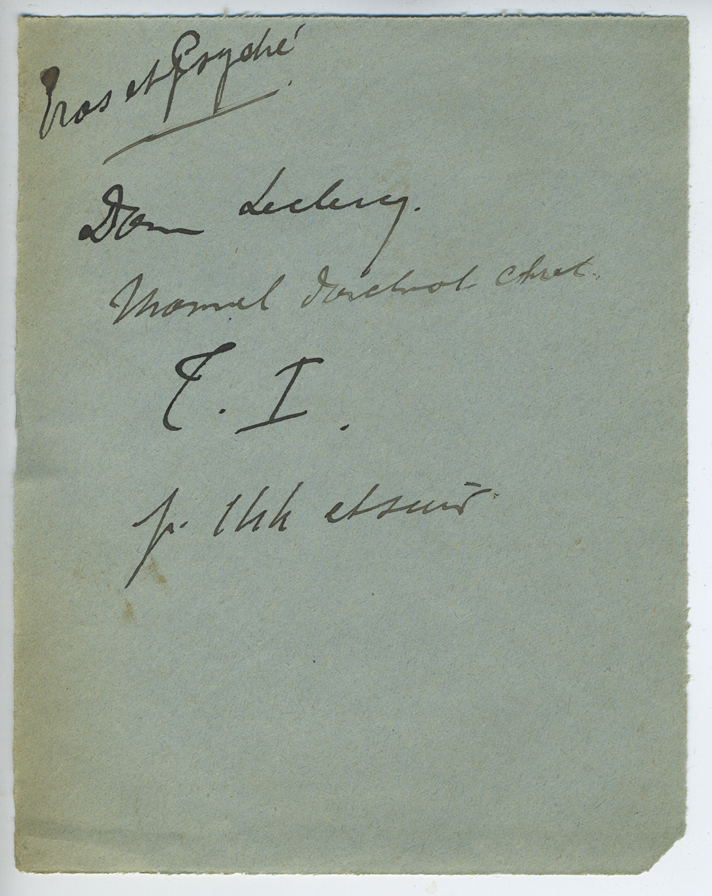 Eros et Psyché.
Dom Leclercq.
Manuel d'archéol. chrét.
T. I.
p. 144 et suiv.